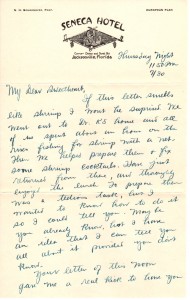 SENECA HOTEL
Jacksonville, Florida
Thursday Night
11:50 P.M.
9/30
My Dear Sweetheart,
If this letter smells
like shrimp I won't be surprised. We
went out to Dr. K's home and all
of us spent about an hour on the
river fishing for shrimp with a net.
Then We helped prepare them for
some shrimp cocktails. Have just
returned from there, and thoroughly
enjoyed the lunch. To prepare them
was a tedious task, but I
wanted to know how to do it
so I could tell you. Maybe
you already know, but I have
an idea that I can tell you
all about it provided you don't
know.
Your letter of this noon
gave me a real kick to have you